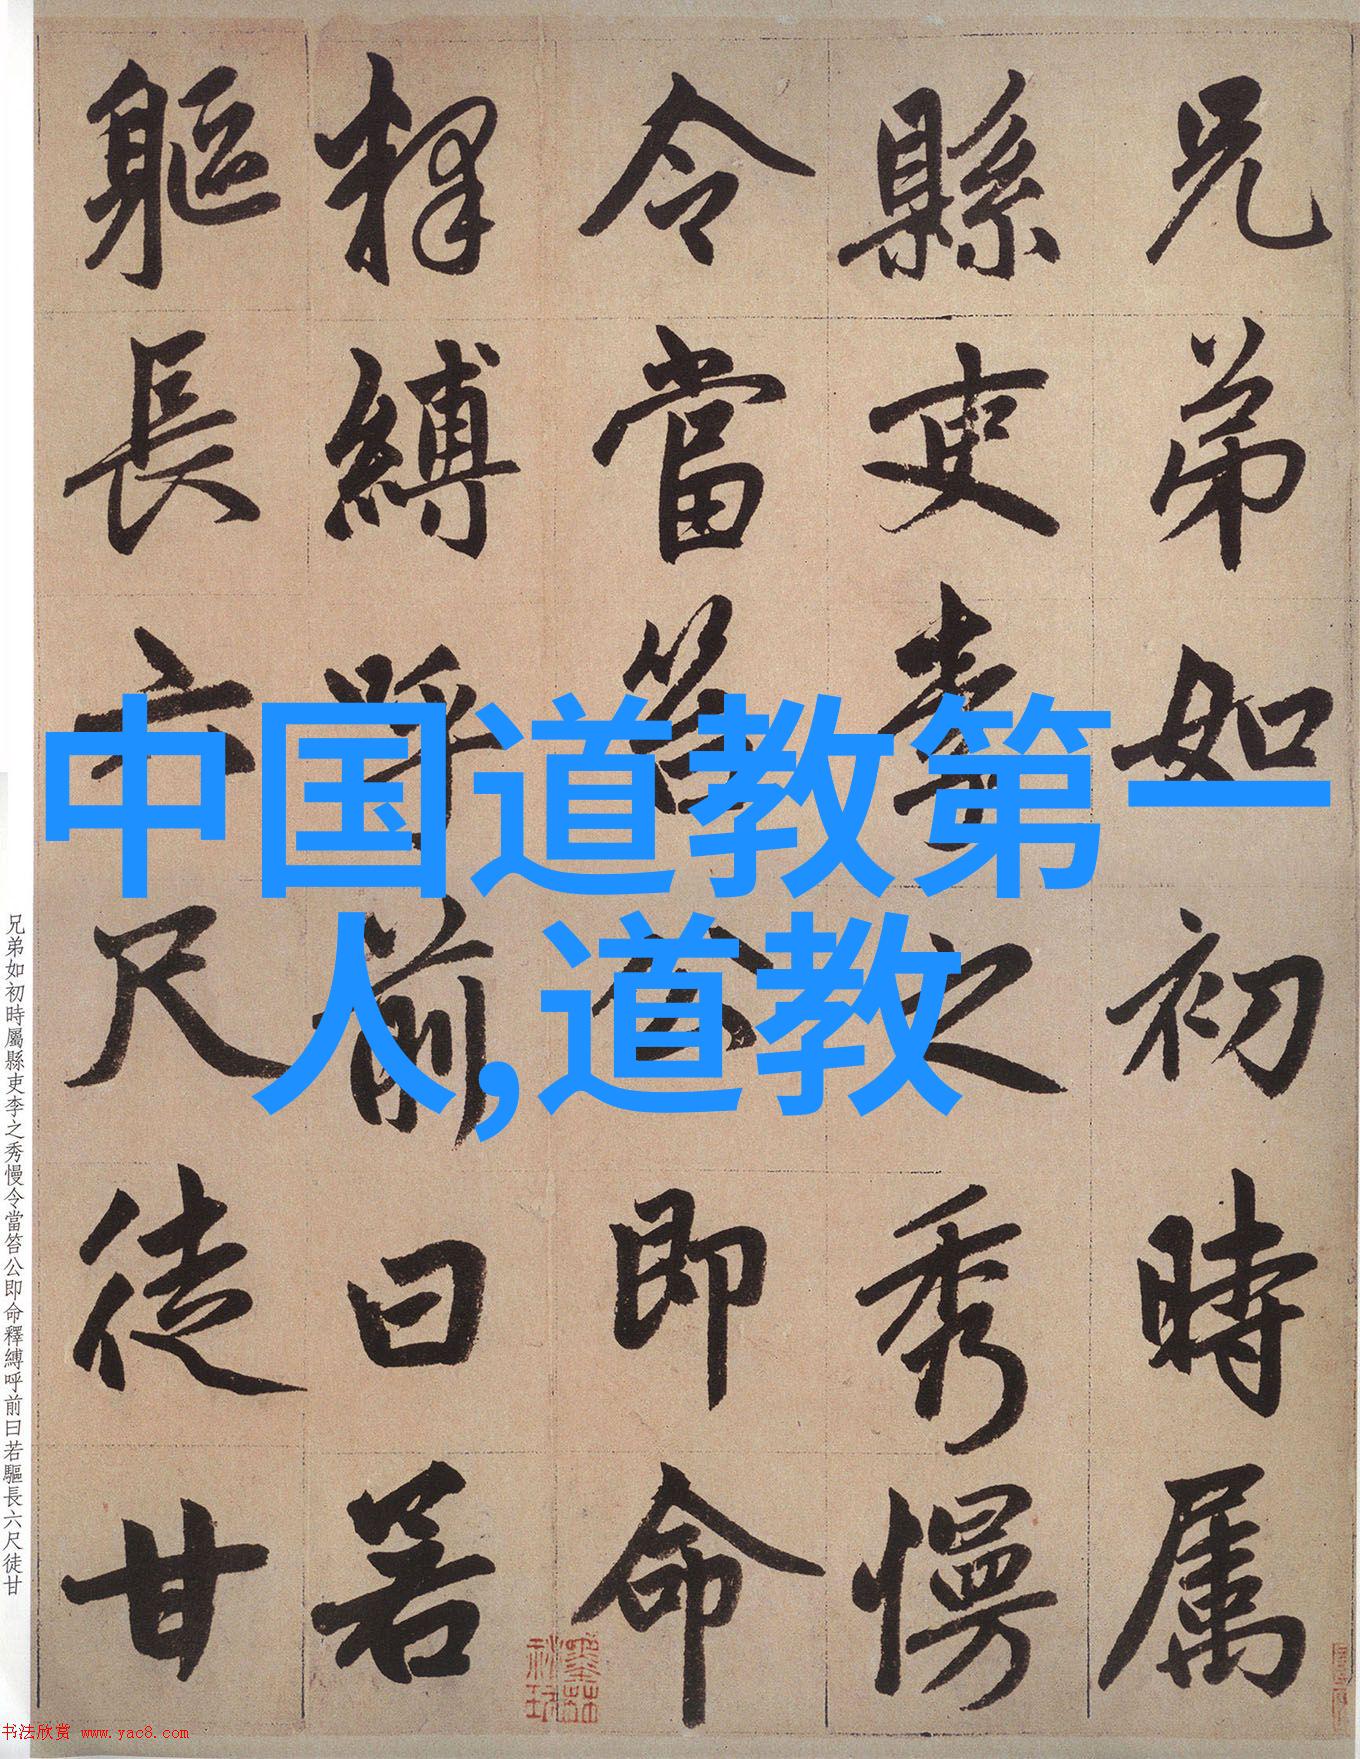 兄弟如初時属
縣吏李之秀慢
令當笞公即命
釋縛呼前曰若
軀長六尺徒甘
中国道教第一
人,道教
兄弟如初時屬縣吏李之秀慢令當笞公即命釋縛呼前曰若驅長六尺徒甘
书法欣赏 www.yac8.com